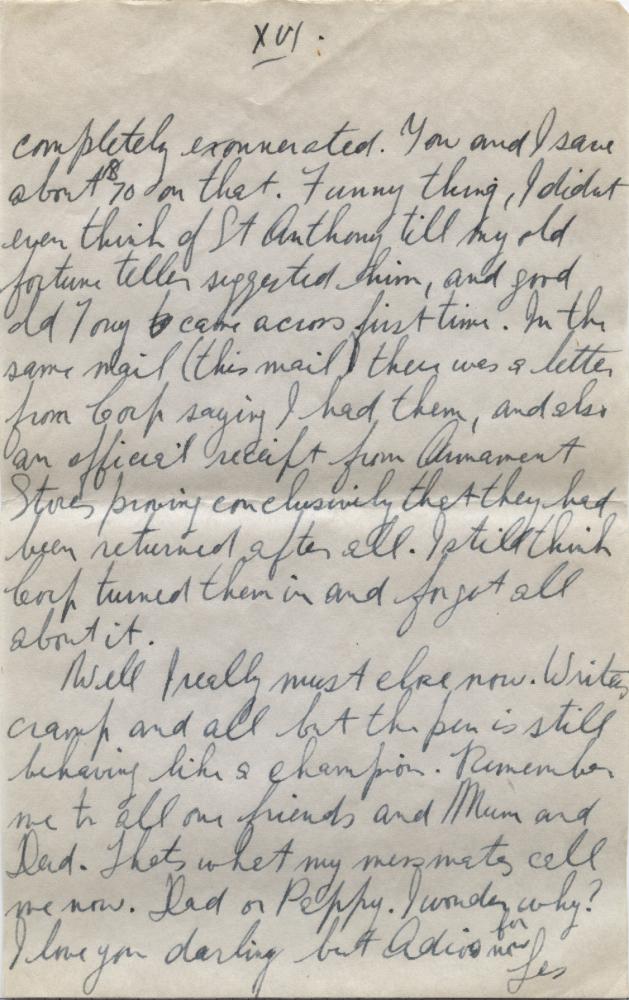 XVI.
completely exonnerated. You and I save
about $70 on that. Funny thing, I didnt
even think of St Anthony till my old
fortune teller suggested him, and good
old Tony came across first time. In the
same mail (this mail) there was a letter
from Corp saying I had them, and also
an official receipt from Armament
Stores proving conclusively that they had
been returned after all. I still think
Corp turned them in and forgot all
about it.
Well I really must close now. Writers
cramp and all but the pen is still
behaving like a champion. Remember
me to all our friends and Mum and
Dad. Thats what my messmates call
me now. Dad or Pappy. I wonder why?
I love you darling but Adios for now
Les